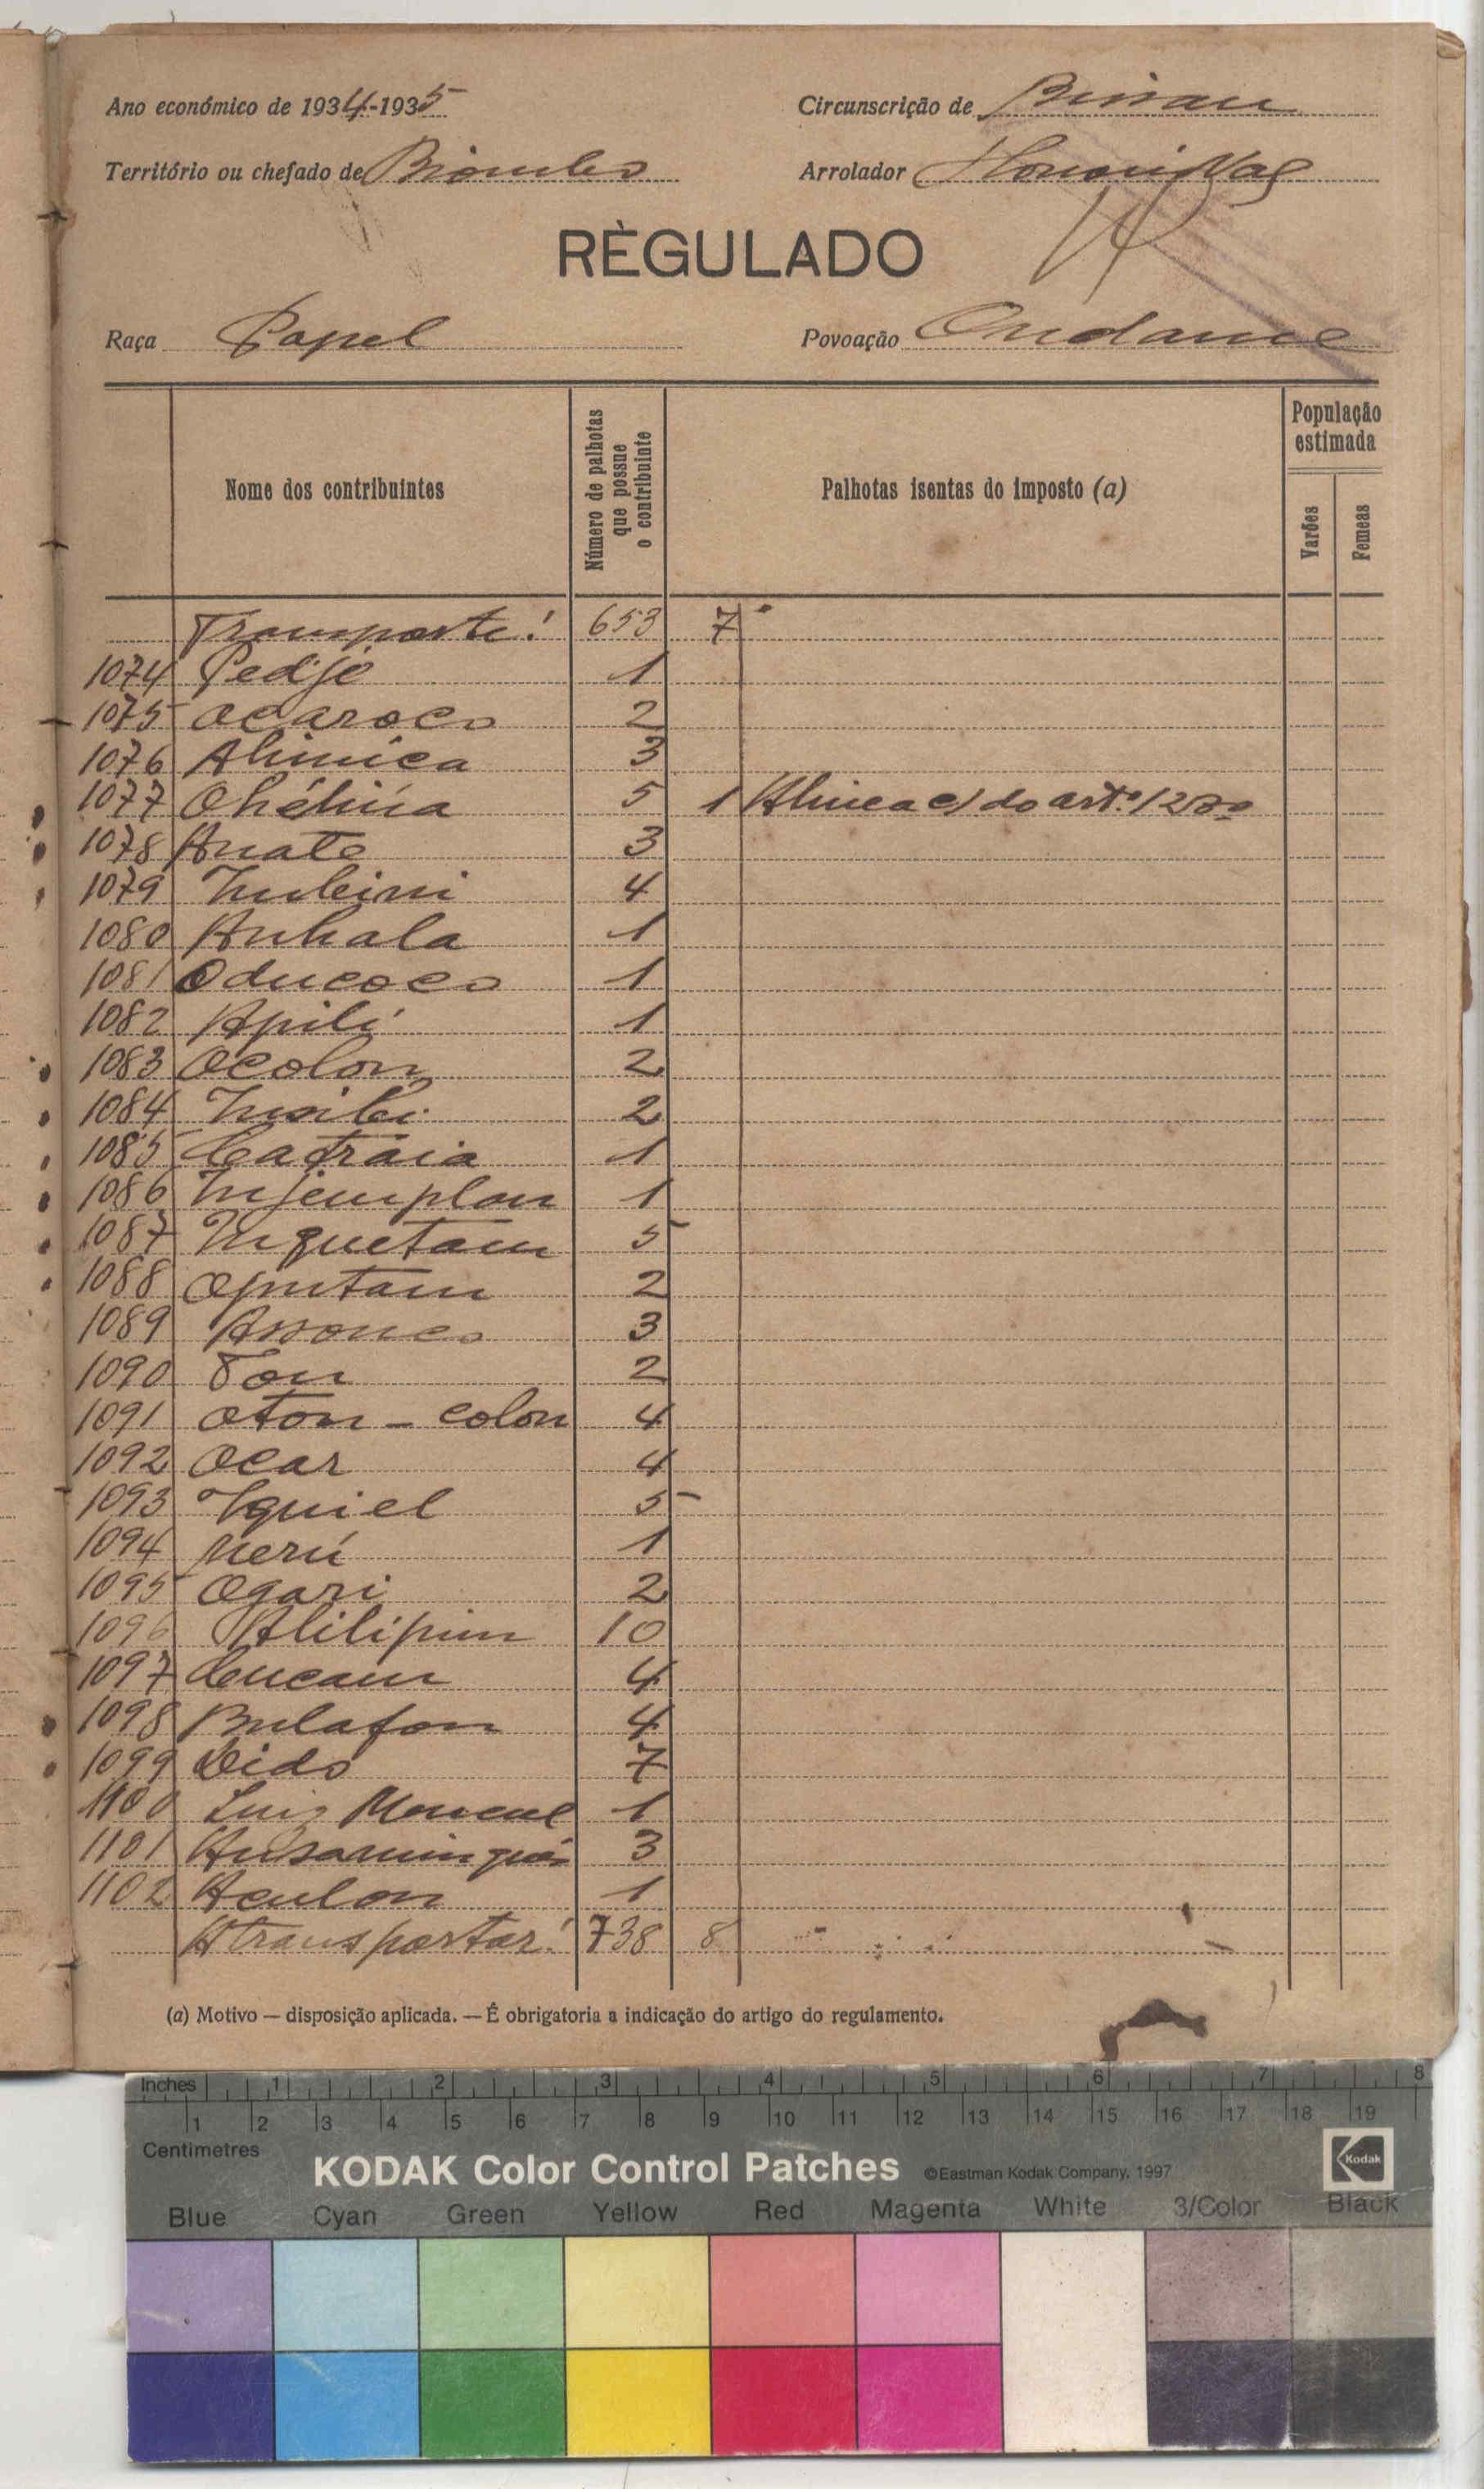 Ano económico de 1934-1935
Circunscrição de Bissau
Território ou chefado de Biombo
Arrolador
RÈGULADO
Raça Papel
Povoação Ondame
Nome dos contribuintes
Número de palhotas que possue o contribuinte
Palhotas isentas do imposto (a)
População estimada
Varões
Femeas
Transporte! 653 7
1074 Pedjé 1
1075 Ocaroco 2
1076 3
1077 5 1 Alinea c) do artº
1078 Anate 3
1079 4
1080 Anhala 1
1081 Oducoco 1
1082 Apili 1
1083 Ocolon 2
1084 2
1085 Catraia 1
1086 Injemplan 1
1087 Inquetam 5
1088 2
1089 3
1090 Ton 2
1091 Oton - colon 4
1092 Ocar 4
1093 5
1094 1
1095 Ogari 2
1096 10
1097 Cucam 4
1098 Bulafon 4
1099 Dido 7
1100 Luiz 1
1101 3
1102 Aculon 1
A transportar! 738 8
(a) Motivo — disposição aplicada. — É obrigatoria a indicação do artigo do regulamento.
Inches 1 2 3 4 5 6 7 8
1 2 3 4 5 6 7 8 9 10 11 12 13 14 15 16 17 18 19
Centimetres
KODAK Color Control Patches ©Eastman Kodak Company, 1997 Kodak
Blue Cyan Green Yellow Red Magenta White 3/Color Black